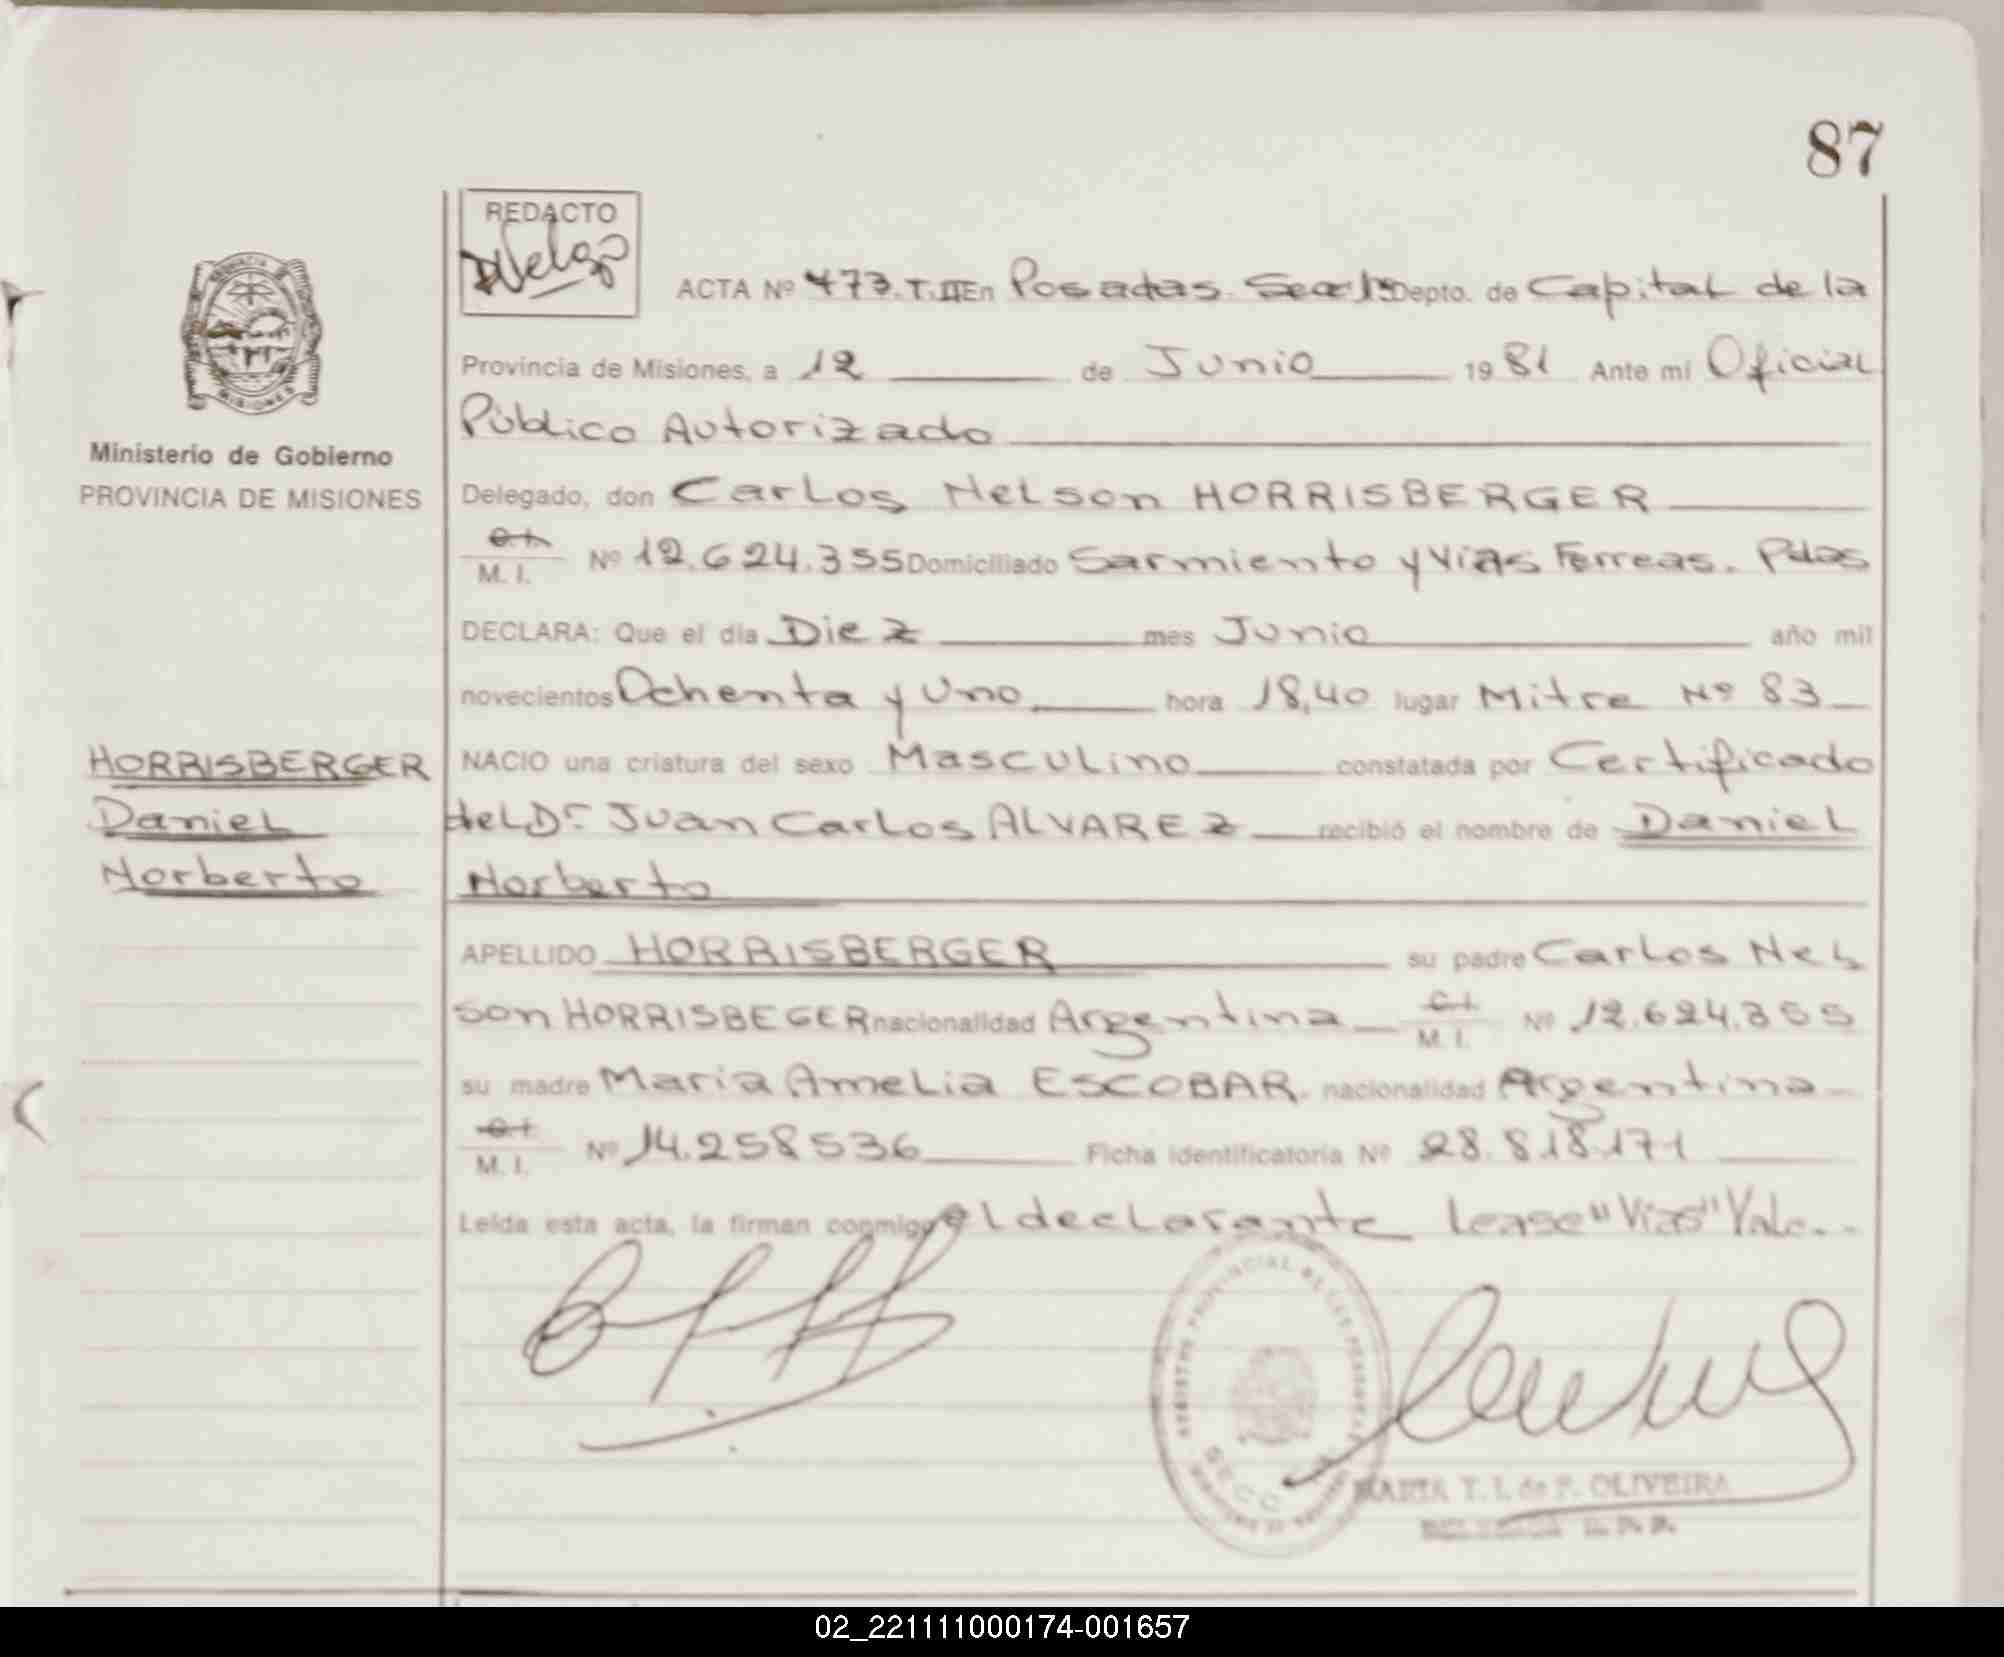 87
REDACTO
ACTA Nº 473. T.II En Posadas. Secc 1ª Depto. de Capital de la
Provincia de Misiones, a 12 de Junio 1981 Ante mi Oficial
Público Autorizado
Ministerio de Gobierno
PROVINCIA DE MISIONES
Delegado, don Carlos Nelson HORRISBERGER
C.I. M. I. Nº 12.624.355 Domiciliado Sarmiento y Vias Ferreas. Pdas
DECLARA: Que el día Diez mes Junio año mil
novecientos Ochenta y Uno hora 18,40 lugar Mitre Nº 83
HORRISBERGER
Daniel
Norberto
NACIO una criatura del sexo Masculino constatada por Certificado
del Dr. Juan Carlos ALVAREZ recibió el nombre de Daniel
Norberto
APELLIDO HORRISBERGER su padre Carlos Nel
son HORRISBEGER nacionalidad Argentina C.I. M. I. Nº 12.624.355
su madre Maria Amelia ESCOBAR. nacionalidad Argentina
C.I. M. I. Nº 14.258536 Ficha identificatoria Nº 28.818.171
Leída esta acta, la firman conmigo el declarante Lease "Vias" Vale..
REGISTRO PROVINCIAL DE LAS PERSONAS
MARIA T. I. de F. OLIVEIRA
02_221111000174-001657